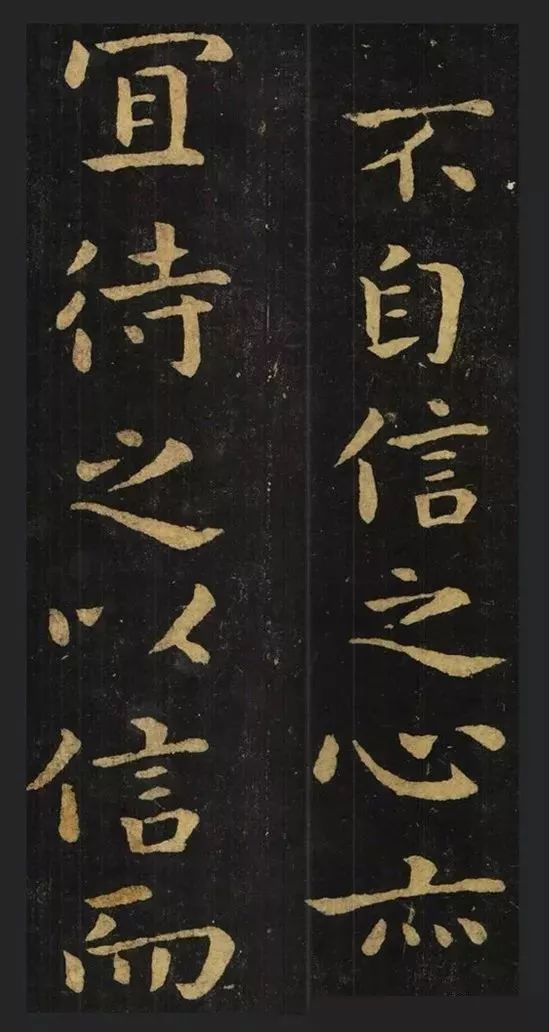 不自信之心亦
宜待之以信而